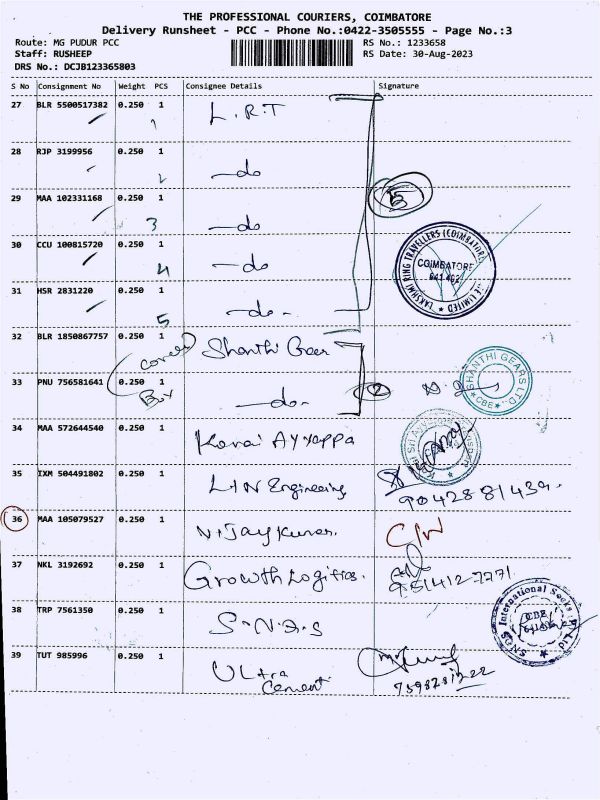 THE PROFESSIONAL COURIERS, COIMBATORE
Delivery Runsheet - PCC - Phone No.:0422-3505555 - Page No.:3
Route: MG PUDUR PCC RS No.: 1233658
Staff: RUSHEEP RS Date: 30-Aug-2023
DRS No.: DCJB123365803
S No Consignment No Weight PCS Consignee Details Signature
27 BLR 5500517382 0.250 1 L.R.T
1
28 RJP 3199956 0.250 1 -do
2
5
29 MAA 102331168 0.250 1 -do
3
30 CCU 100815720 0.250 1 -do
4
LAKSHMI RING TRAVELLERS (COIMBATORE) LIMITED
COIMBATORE
641 402
31 HSR 2831220 0.250 1 -do-
5
32 BLR 1850867757 0.250 1 Shanthi Gear
cover
SHANTHI GEARS LTD.
CBE
33 PNU 756581641 0.250 1 -do-
Box
2
34 MAA 572644540 0.250 1 Kovai Ayyappa
35 IXM 504491802 0.250 1 LIN Engineering
9042881439
36 MAA 105079527 0.250 1 Vijaykumar. C/N
37 NKL 3192692 0.250 1 Growth Logistics.
9514127771
38 TRP 7561350 0.250 1 S.N.Q.S
SNQS International Socks Pvt Ltd
CBE
39 TUT 985996 0.250 1 Ultra
Cement